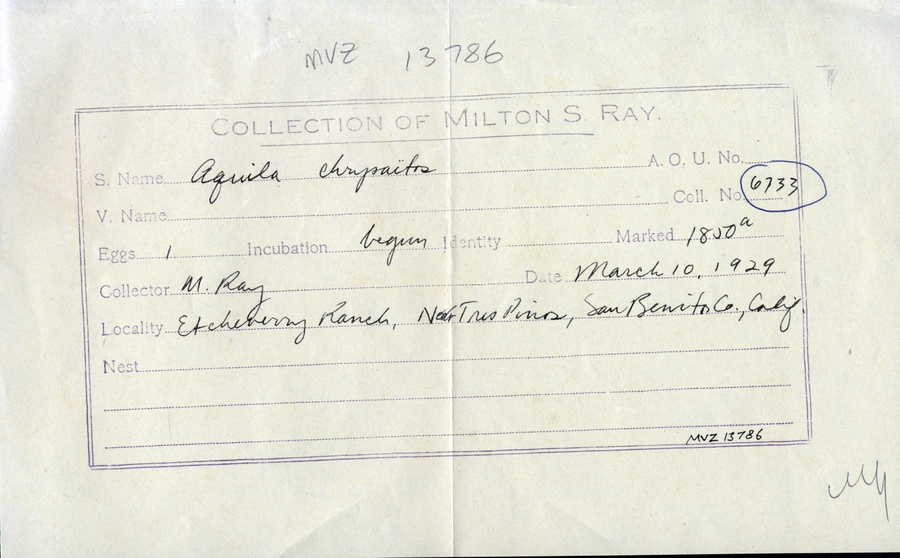 MVZ 13786
COLLECTION OF MILTON S. RAY.
S. Name Aquila chrysaëtos A. O. U. No.
V. Name Coll. No. 6733
Eggs 1 Incubation begun Identity Marked 1850a
Collector M. Ray Date March 10, 1929
Locality Etcheverry Ranch, Near Tres Pinos, San Benito Co., Calif.
Nest
MVZ 13786